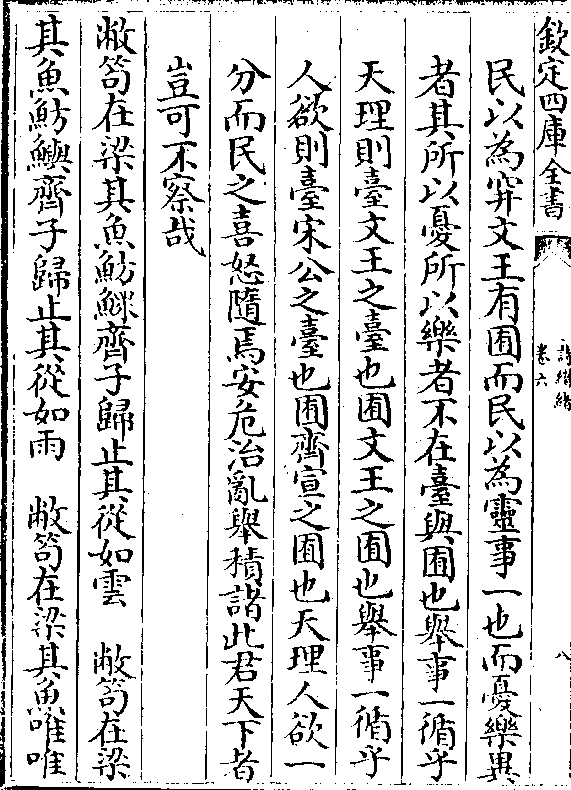 欽定四庫全書
詩纘緒
卷六
八
民以為穽文王有囿而民以為靈事一也而憂樂異
者其所以憂所以樂者不在臺與囿也舉事一循乎
天理則臺文王之臺也囿文王之囿也舉事一循乎
人欲則臺宋公之臺也囿齊宣之囿也天理人欲一
分而民之喜怒隨焉安危治亂舉積諸此君天下者
豈可不察哉
敝笱在梁其魚魴鰥齊子歸止其從如雲　敝笱在梁
其魚魴鱮齊子歸止其從如雨　敝笱在梁其魚唯唯